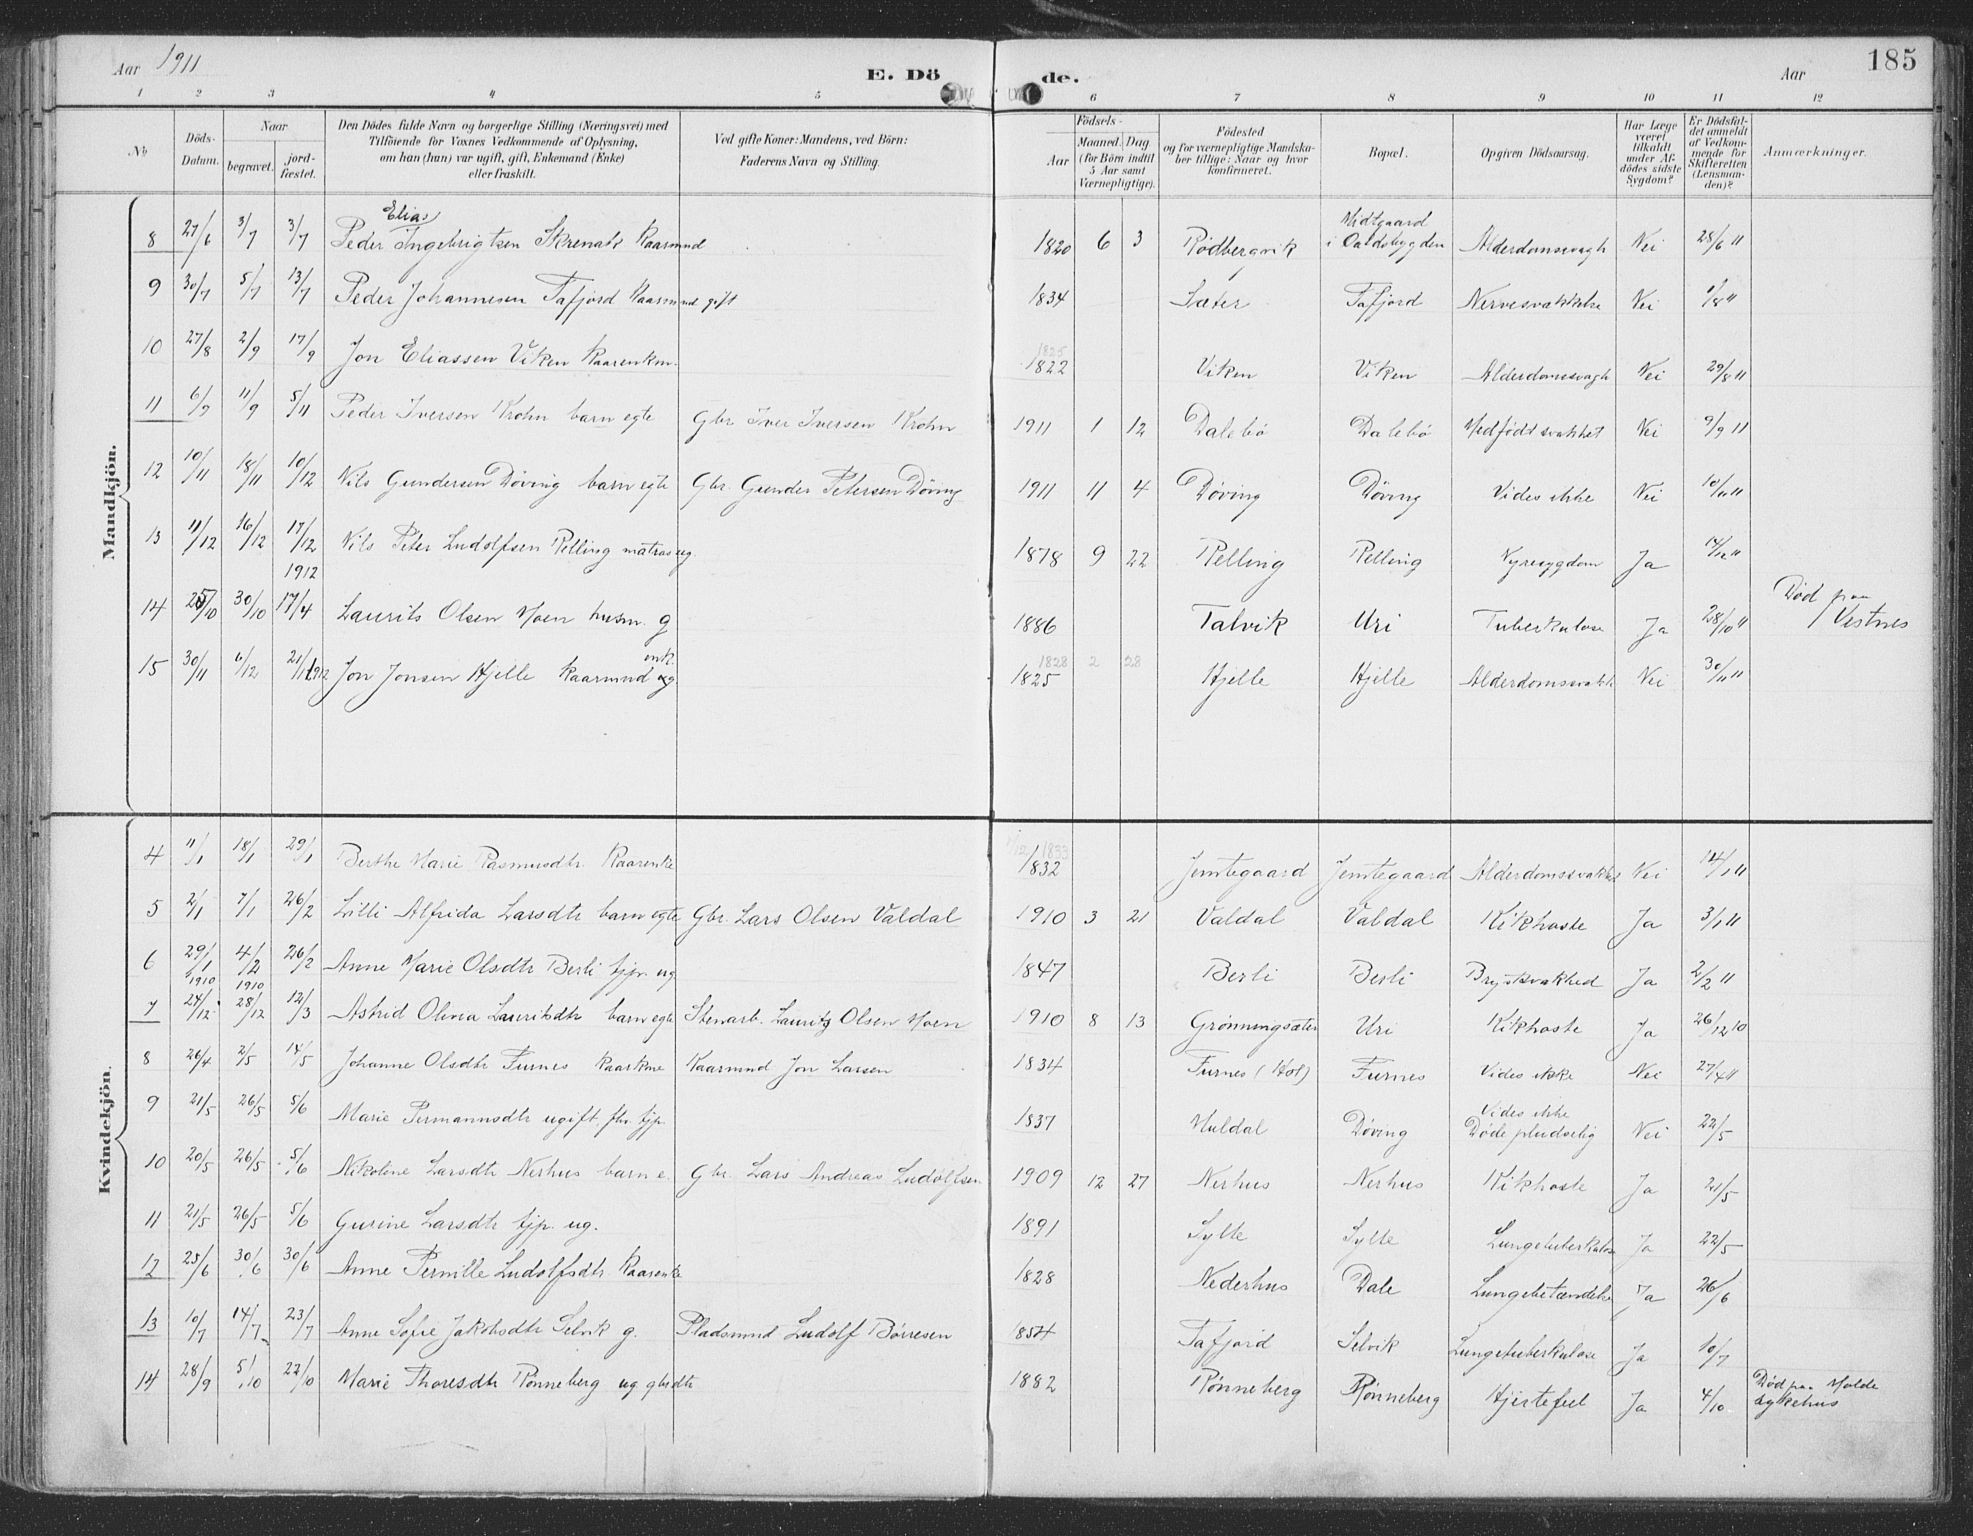 Aar 1911 E. Dö de. Aar 185
1 2 3 4 5 6 7 8 9 10 11 12
No
Döds-Datum.
Naar
begravet.
jord-fæstet.
Den Dödes fulde Navn og borgerlige Stilling (Næringsvei) med
Tilföiende for Voxnes Vedkommende af Oplysning,
om han (hun) var ugift, gift, Enkemand (Enke)
eller fraskilt.
Ved gifte Koner: Mandens, ved Börn:
Faderens Navn og Stilling.
Födsels-
Aar
Maaned. Dag
(for Börn indtil
5 Aar samt
Værnepligtige).
Födested
og for værnepligtige Mandska-
ber tillige: Naar og hvor
konfirmeret.
Bopæl.
Opgiven Dödsaarsag.
Har Læge
været
tilkaldt
under Af-
dödes sidste
Sygdom?
Er Dödsfal-
det anmeldt
af Vedkom-
mende for
Skifteretten
(Lensman-
den)?
Anmærkninger.
Mandkjön.
8 27/6 3/7 3/7 Peder Elias Ingebrigtsen Skrenak Kaarmnd 1820 6 3 Rødbergvik Midtgaard i Oaldsbygden Alderdomssvagh Nei 28/6 "
9 30/7 5/7 13/7 Peder Johannesen Tafjord Kaarmnd gift 1834 Sæter Tafjord Nervesvækkelse Nei 1/8 "
10 27/8 2/9 17/9 Jon Eliassen Viken Kaarenkm. 1825 1822 Viken Viken Alderdomssvagh Nei 29/8 "
11 6/9 11/9 5/11 Peder Iversen Krohn barn egte Gbr Iver Iversen Krohn 1911 1 12 Dalebø Dalebø Medfødt svakhet Nei 9/9 11
12 10/11 18/11 10/12 Nils Gundersen Døving barn egte Gbr. Gunder Petersen Døving 1911 11 4 Døving Døving Vides ikke Nei 10/11 "
13 11/12 16/12 17/12 Nils Peter Ludolfsen Relling matros ug. 1878 9 22 Relling Relling Nyresygdom Ja 14/12 "
1912
14 25/10 30/10 17/4 Laurits Olsen Moen husm. g 1886 Talvik Uri Tuberkulose Ja 28/10 " Død paa Vestnes
15 30/11 6/12 21/1 1912 Jon Jonsen Hjelle Kaarmnd enk. 1828 2 28 1825 Hjelle Hjelle Alderdomssvakh Nei 30/11 "
Kvindekjön.
4 11/1 18/1 29/1 Berthe Marie Rasmusdtr. Kaarenke 1833 1832 Jemtegaard Jemtegaard Alderdomssvakhed Nei 14/1 "
5 2/1 7/1 26/2 Lilli Alfrida Larsdtr barn egte Gbr. Lars Olsen Valdal 1910 3 21 Valdal Valdal Kikhoste Ja 3/1 "
6 29/1 4/2 26/2 Anne Marie Olsdtr Berli tjp. ug 1847 Berli Berli Brystsvakhed Ja 2/2 "
1910 1910
7 24/12 28/12 12/3 Astrid Olivia Lauritsdtr barn egte Stenarb. Lauritz Olsen Moen 1910 8 13 Grønningsæter Uri Kikhoste Ja 26/12 10
8 26/4 2/5 14/5 Johanne Olsdtr Furnes Kaarkne Kaarmnd Jon Larsen 1834 Furnes (Hol) Furnes Vides ikke Nei 27/4 "
9 21/5 26/5 5/6 Marie Permannsdtr ugift fhv. tjp. 1837 Muldal Døving Vides ikke Døde pludselig Nei 22/5
10 20/5 26/5 5/6 Nikoline Larsdtr Nerhus barn e. Gbr. Lars Andreas Ludolfsen 1909 12 27 Nerhus Nerhus Kikhoste Ja 21/5
11 21/5 26/5 5/6 Gurine Larsdtr tjp. ug. 1891 Sylte Sylte Lungetuberkulose Ja 22/5
12 25/6 30/6 30/6 Anne Pernille Ludolfsdtr Kaarenke 1828 Nederhus Dale Lungebetændelse Ja 26/6
13 10/7 14/7 23/7 Anne Sofie Jakobsdtr Selvik g. Pladsmnd Ludolf Børresen 1854 Tafjord Selvik Lungetuberkulose Ja 10/7
14 28/9 5/10 22/10 Marie Thoresdtr Rønneberg ug gbrdtr 1882 Rønneberg Rønneberg Hjertefeil Ja 4/10 Død paa Molde sykehus